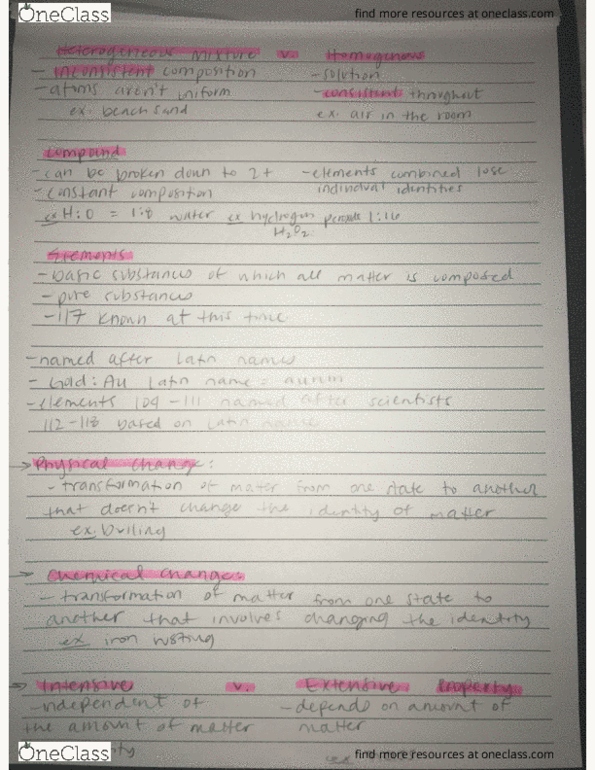 OneClass
find more resources at oneclass.com
Heterogeneous Mixture v. Homogenous
- inconsistent composition - solution
- atoms aren't uniform - consistent throughout
ex. beach sand ex. air in the room
compound
- can be broken down to 2+ - elements combined lose
- constant composition individual identities
ex H:O = 1:8 water ex hydrogen peroxide 1:16
H₂O₂
Elements
- basic substances of which all matter is composed
- pure substances
- 117 known at this time
- named after latin names
- Gold: Au latin name =
- elements 104 - 111 named after scientists
112 - 118 based on latin name
→ Physical change:
- transformation of matter from one state to another
that doesn't change the identity of matter
ex. boiling
→ chemical changes
- transformation of matter from one state to
another that involves changing the identity
ex iron rusting
→ Intensive v. Extensive Property
- independent of - depends on amount of
the amount of matter matter
OneClass
find more resources at oneclass.com